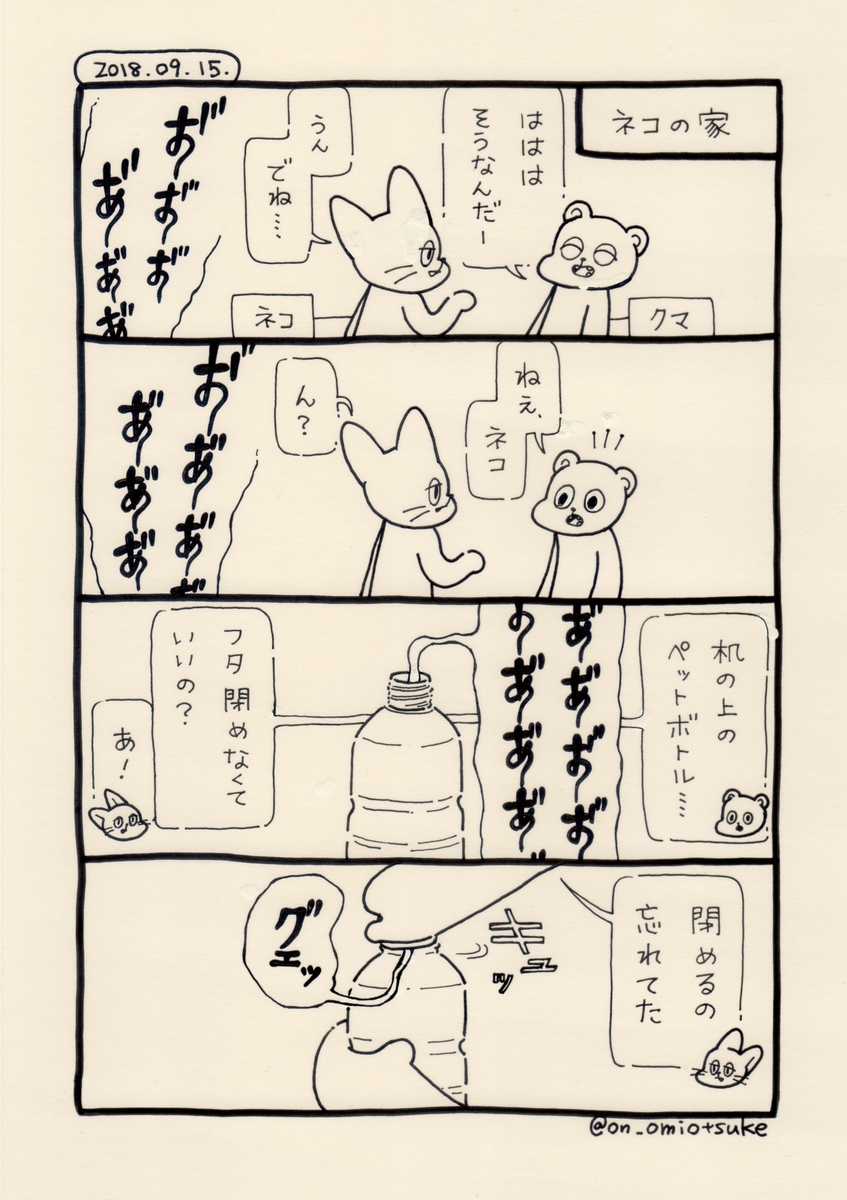 2018.09.15.
ネコの家
ははは
そうなんだー
うん
でね……
お゛お゛お゛
あ゛あ゛あ゛
ネコ
クマ
ねぇ、
ネコ
ん?
お゛あ゛あ゛
あ゛あ゛あ゛
机の上の
ペットボトル……
あ゛あ゛お゛お゛
お゛あ゛あ゛あ゛
フタ閉めなくて
いいの?
あ!
閉めるの
忘れてた
キュッ
グェッ
@on_omiotsuke